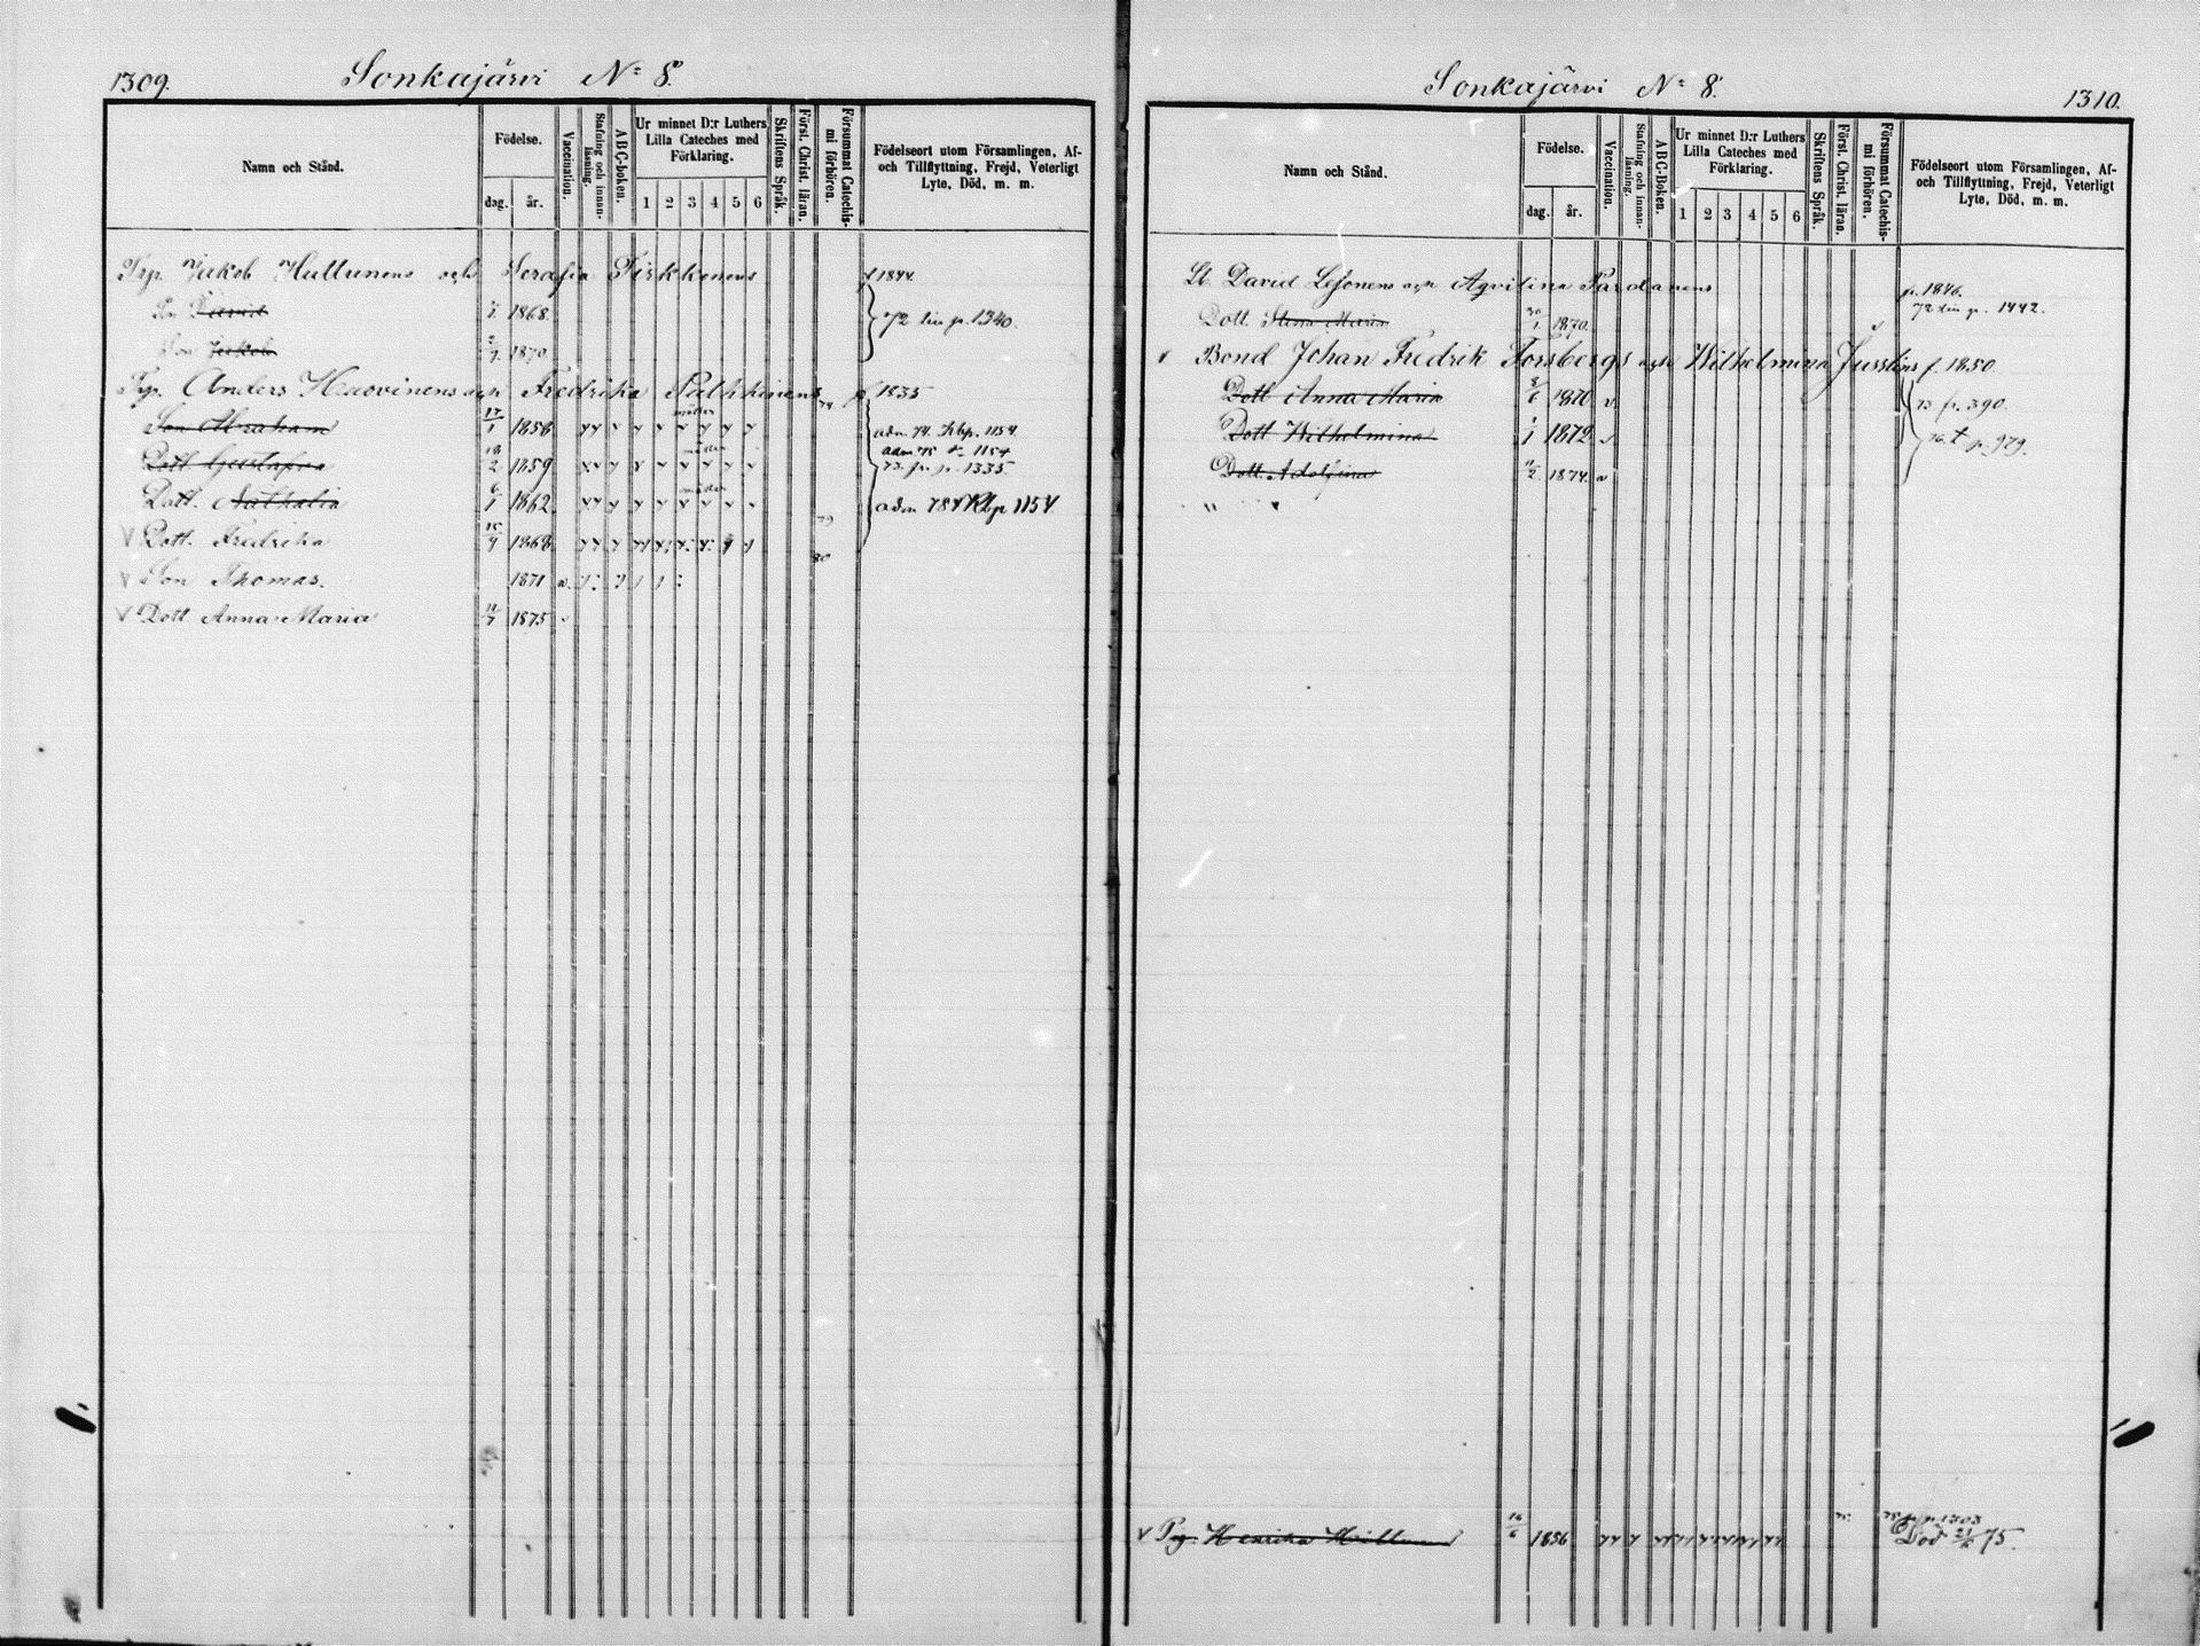 1309.
Sonkajärvi No 8.
Namn och Stånd.
Födelse.
dag. år.
Vaccination.
Stafning och innan-läsning.
ABC-boken.
Ur minnet D:r Luthers Lilla Cateches med Förklaring.
1 2 3 4 5 6
Skriftens Språk.
Först. Christ. läran.
Försummat Catechis-mi förhören.
Födelseort utom Församlingen, Af- och Tillflyttning, Frejd, Veterligt Lyte, Död, m. m.
Jakob Huttunens och Serafia Tirkkonens 1844.
1868.
72 p. 1340.
Son Jakob 1870
Anders Haovinens och Fredrika 1835
Son Abraham 17/1 1856 adm 74. 1154
Dott Gustafva 18/2 1859 adm 75 1154
73. p. 1335.
Dott. Nathalia 6/1 1862 adm 78 1154
79
V Dott. Fredrika 15/9 1868
80
V Son Thomas. 1871
V Dott Anna Maria 11/7 1875
Sonkajärvi No 8.
1310.
Namn och Stånd.
Födelse.
dag. år.
Vaccination.
Stafning och innan-läsning.
ABC-Boken.
Ur minnet D:r Luthers Lilla Cateches med Förklaring.
1 2 3 4 5 6
Skriftens Språk.
Först. Christ. läran.
Försummat Catechis-mi förhören.
Födelseort utom Församlingen, Af- och Tillflyttning, Frejd, Veterligt Lyte, Död, m. m.
David och Agvilina Pardanens p. 1846.
Dott. Stina Maria 30/1 1870. 72 p. 1442.
Bond Johan Fredrik Forsbergs och Wilhelmina f. 1850
Dott Anna Maria 1870 73 fr. 390.
Dott Wilhelmina 1872 76. p. 979.
Dott. Adolfina 11/2 1874.
V Henrika 1856 p. 1303
Död 75.